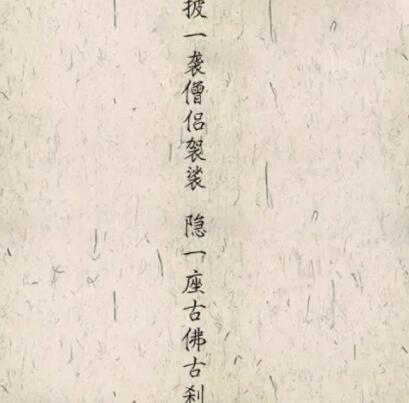 披一袭僧侣袈裟 隐一座古佛古刹